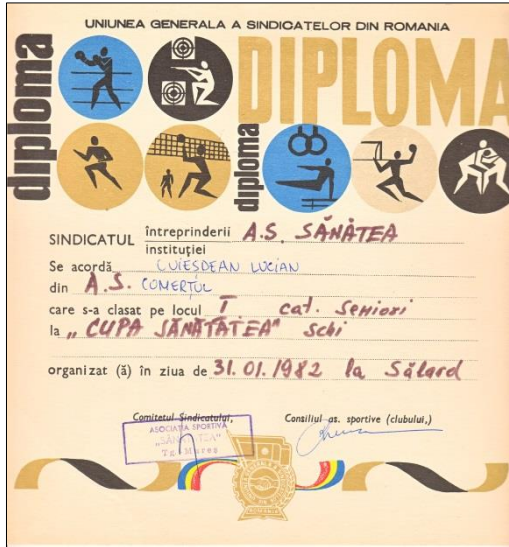 UNIUNEA GENERALA A SINDICATELOR DIN ROMANIA
diploma
DIPLOMA
diploma
SINDICATUL întreprinderii A.S. SĂNĂTEA
instituției
Se acordă CUIEȘDEAN LUCIAN
din A.S. COMERȚUL
care s-a clasat pe locul I cat. Seniori
la „CUPA SĂNĂTATEA" Schi
organizat (ă) în ziua de 31.01.1982 la Sălard
Comitetul Sindicatului,
Consiliul as. sportive (clubului,)
ASOCIAȚIA SPORTIVĂ
„SĂNĂTATEA"
Tg. Mureș
ROMANIA